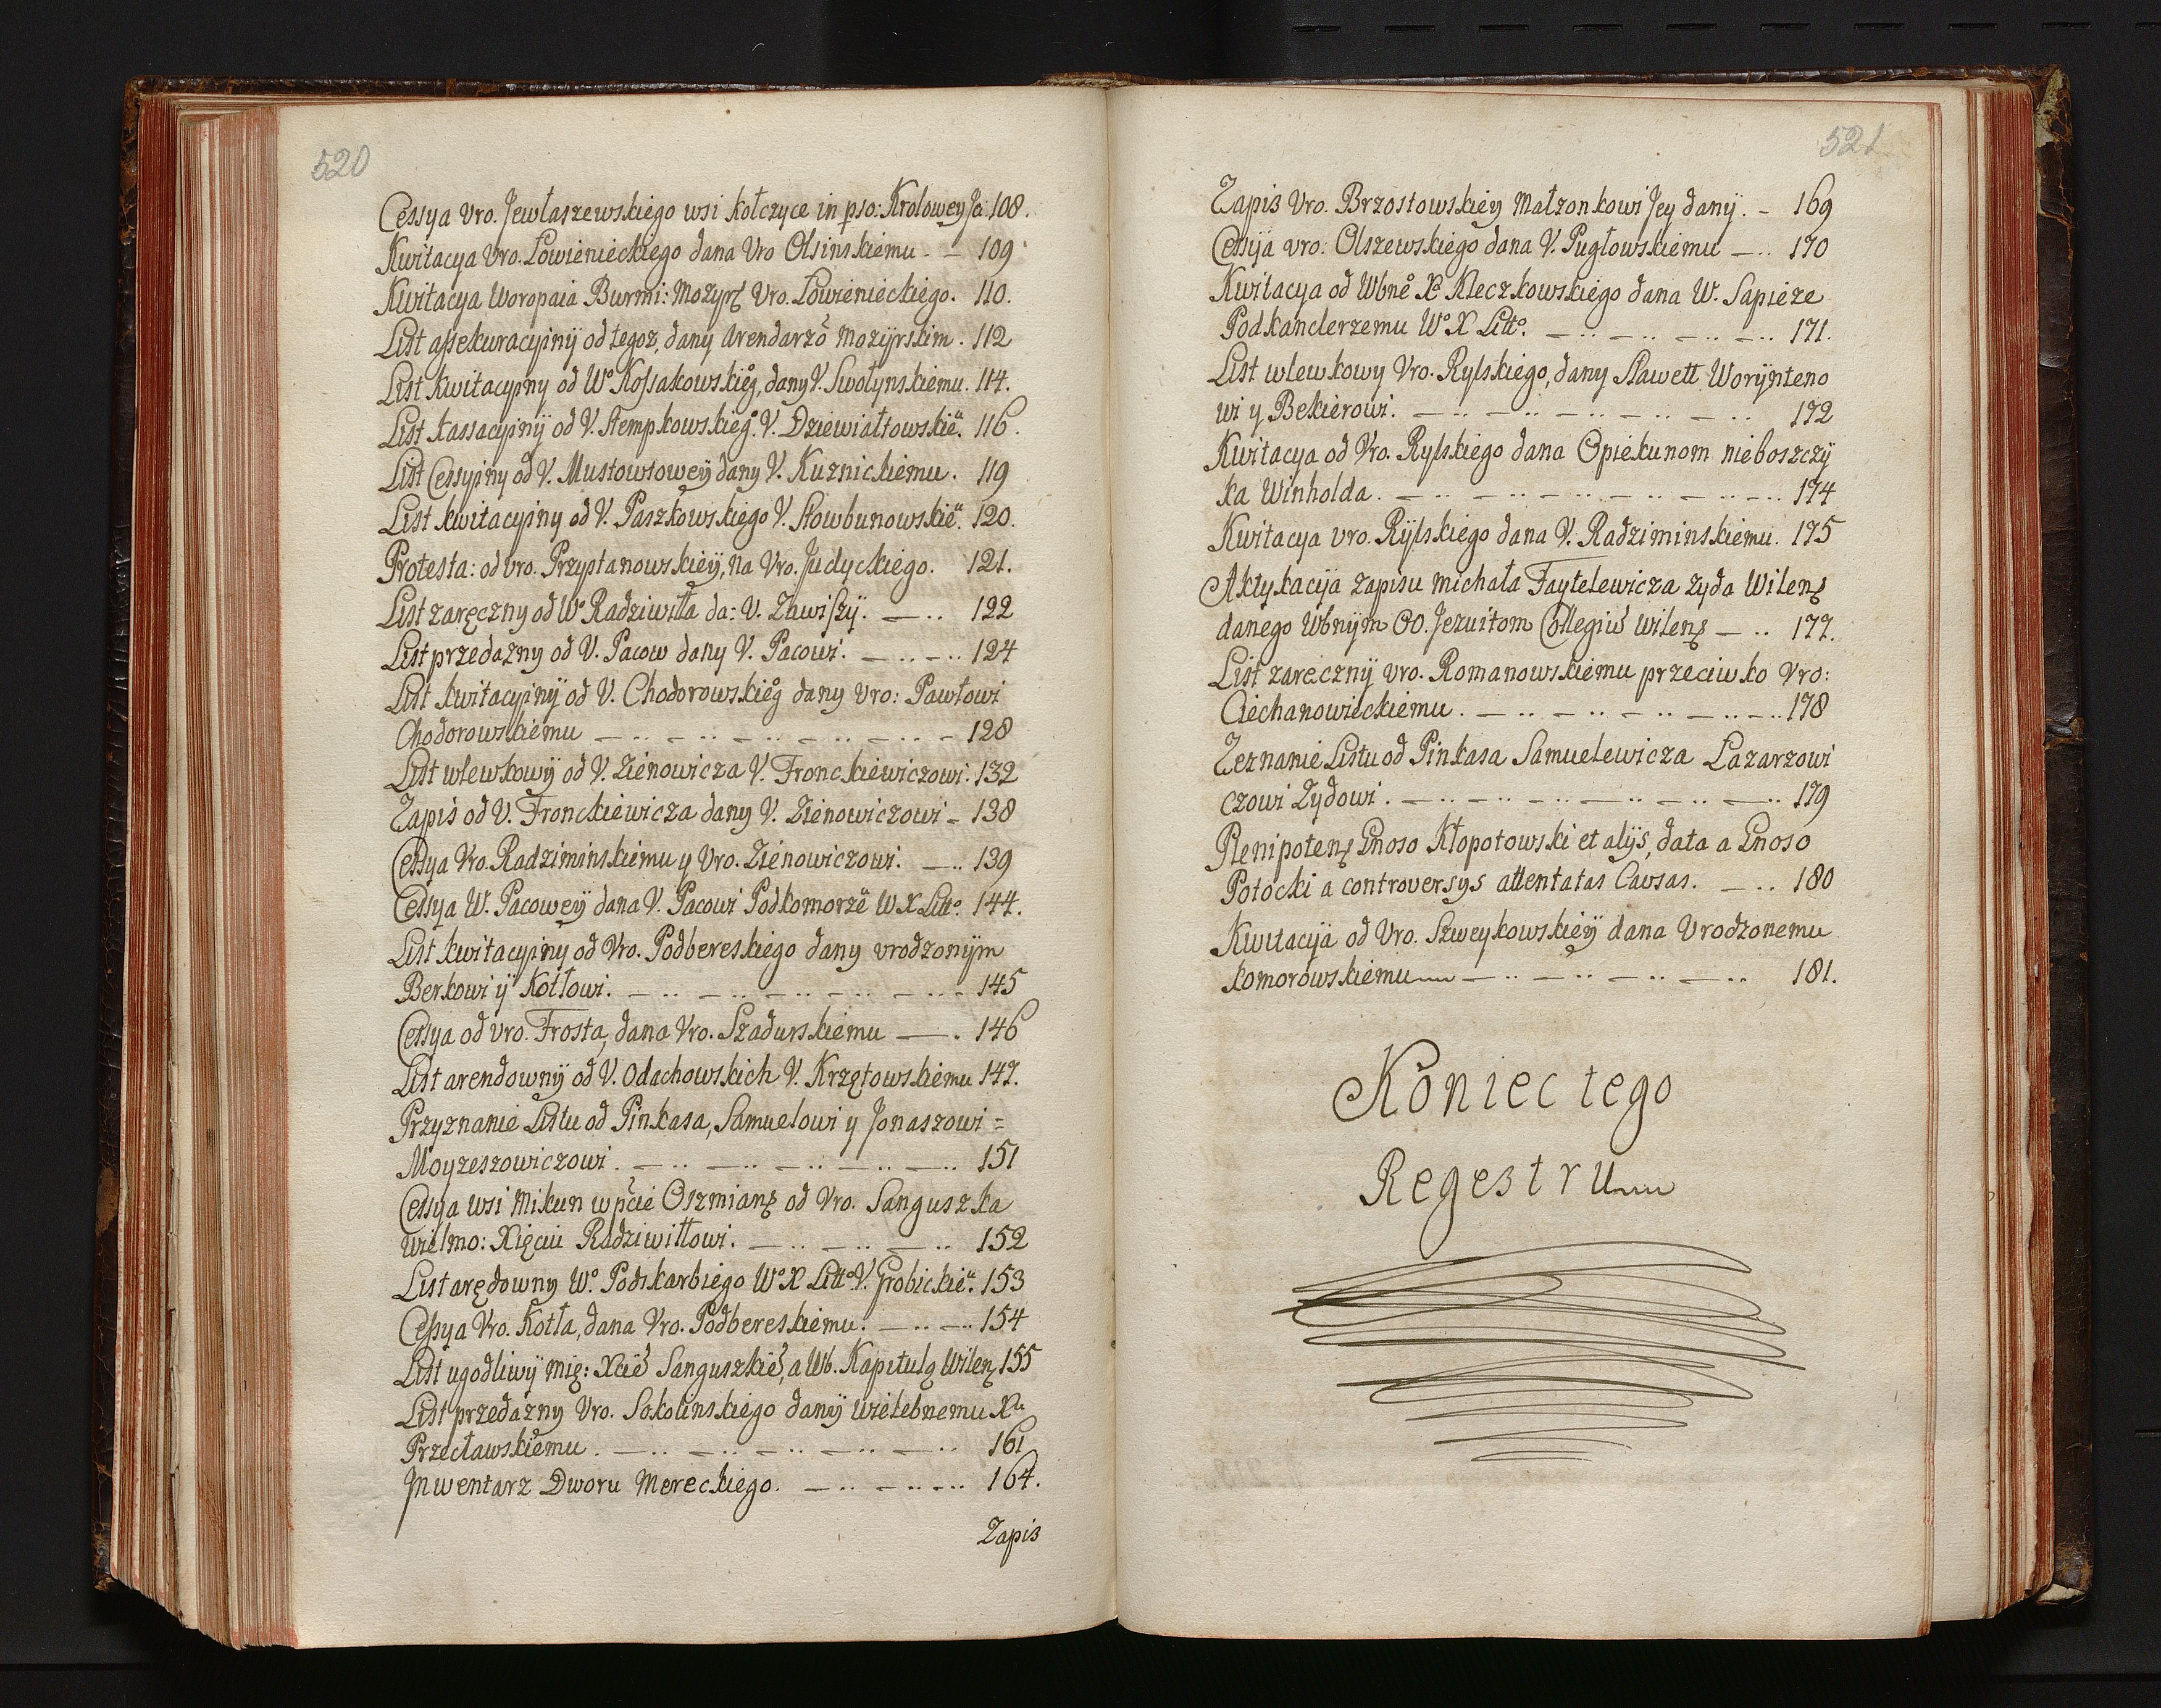 520
Cessya Vro. Jewłaszewskiego wsi Kołczyce in pso: Krolowey Jei 108.
Kwitacya Vro. Lowienieckiego dana Vro Olsinskiemu - - 109
Kwitacya Woropaia Burmi: Mozyrs Vro. Lowienieckiego. 110.
List assekuracyiny od tegoz, dany Arendarzõ Mozyrskim. 112
List Kwitacyiny od Wº Kossakowskieg, dany V. Swolynskiemu. 114.
List kassacyiny od V. Stempkowskieg. V. Dziewiałtowskie. 116.
List Cessyiny od V. Mustowtowey dany V. Kuznickiemu. 119
List kwitacyiny od V. Paszkowskiego V. Słowbunowskie. 120.
Protesta: od vro. Przyptanowskiey, na Vro. Judyckiego. 121.
List zaręczny od Wº Radziwiłła da: V. Zawiszy. — .. 122
List przedazny od V. Pacow dany V. Pacowi. — .. — .. 124
List kwitacyiny od V. Chodorowskieg dany vro: Pawłowi
Chodorowskiemu — .. — .. — .. — .. — .. — 128
List wlewkowy od V. Zienowicza V. Fronckiewiczowi. 132
Zapis od V. Fronckiewicza dany V. Zienowiczowi - 138
Cessya Vro. Radziminskiemu y Vro. Zienowiczowi. — .. 139
Cessya W. Pacowey dana V. Pacowi Podkomorze WX Littº. 144.
List kwitacyiny od Vro. Podbereskiego dany vrodzonym
Berkowi y Kotłowi. — .. — .. — .. — .. — .. 145
Cessya od vro. Frosta, dana Vro. Szadurskiemu — . 146
List arendowny od V. Odachowskich V. Krzętowskiemu 147.
Przyznanie Listu od Pinkasa, Samuelowi y Jonaszowi =
Moyzeszowiczowi. — .. — .. — .. — .. — .. 151
Cessya wsi Mikun w pcie Oszmians od Vro. Sanguszka
wielmo: Xięciu Radziwiłłowi. — .. — .. — .. 152
List arędowny Wº. Podskarbiego Wº X Littº V. Grobickie. 153
Cessya Vro. Kotła, dana Vro. Podbereskiemu. — .. — .. 154
List ugodliwy mię: Xcie Sanguszkie, a Wb. Kapitulą Wilens 155
List przedazny Vro. Sokolinskiego dany wielebnemu Xu
Przecławskiemu. — .. — .. — .. — .. — .. 161
Jnwentarz Dworu Mereckiego. — .. — .. .. 164.
Zapis
521
Zapis Vro. Brzostowskiey Małzonkowi Jey dany. - 169
Cessya vro: Olszewskiego dana V. Pugłowskiemu — .. 170
Kwitacya od Wbne X Kleczkowskiego dana W. Sapieze
Podkanclerzemu Wº X Littº. — .. — .. — .. — .. 171.
List wlewkowy Vro. Rylskiego, dany Sławett Worynteno
wi y Bekierowi. — .. — .. — .. — .. — .. 172
Kwitacya od Vro. Rylskiego dana Opiekunom nieboszczy
ka Winholda. — .. — .. — .. — .. — .. 174
Kwitacya vro. Rylskiego dana V. Radziminskiemu. 175
Aktykacya zapisu michała Faytelewicza zyda Wilens
danego Wbnym OO. Jezuitom Collegiu Wilens — .. 177.
List zaręczny vro. Romanowskiemu przeciwko Vro:
Ciechanowieckiemu. — .. — .. — .. — .. 178
Zeznanie Listu od Pinkasa Samuelewicza Lazarzowi
czowi Zydowi. — .. — .. — .. — .. — .. 179
Plenipotens Gnoso Kłopotowski et alys, data a Gnoso
Potocki a controversys attentatas Causas. — .. 180
Kwitacya od Vro. Szweykowskiey dana Vrodzonemu
Komorowskiemu — .. — .. — .. — .. 181.
Koniec tego
Regestru